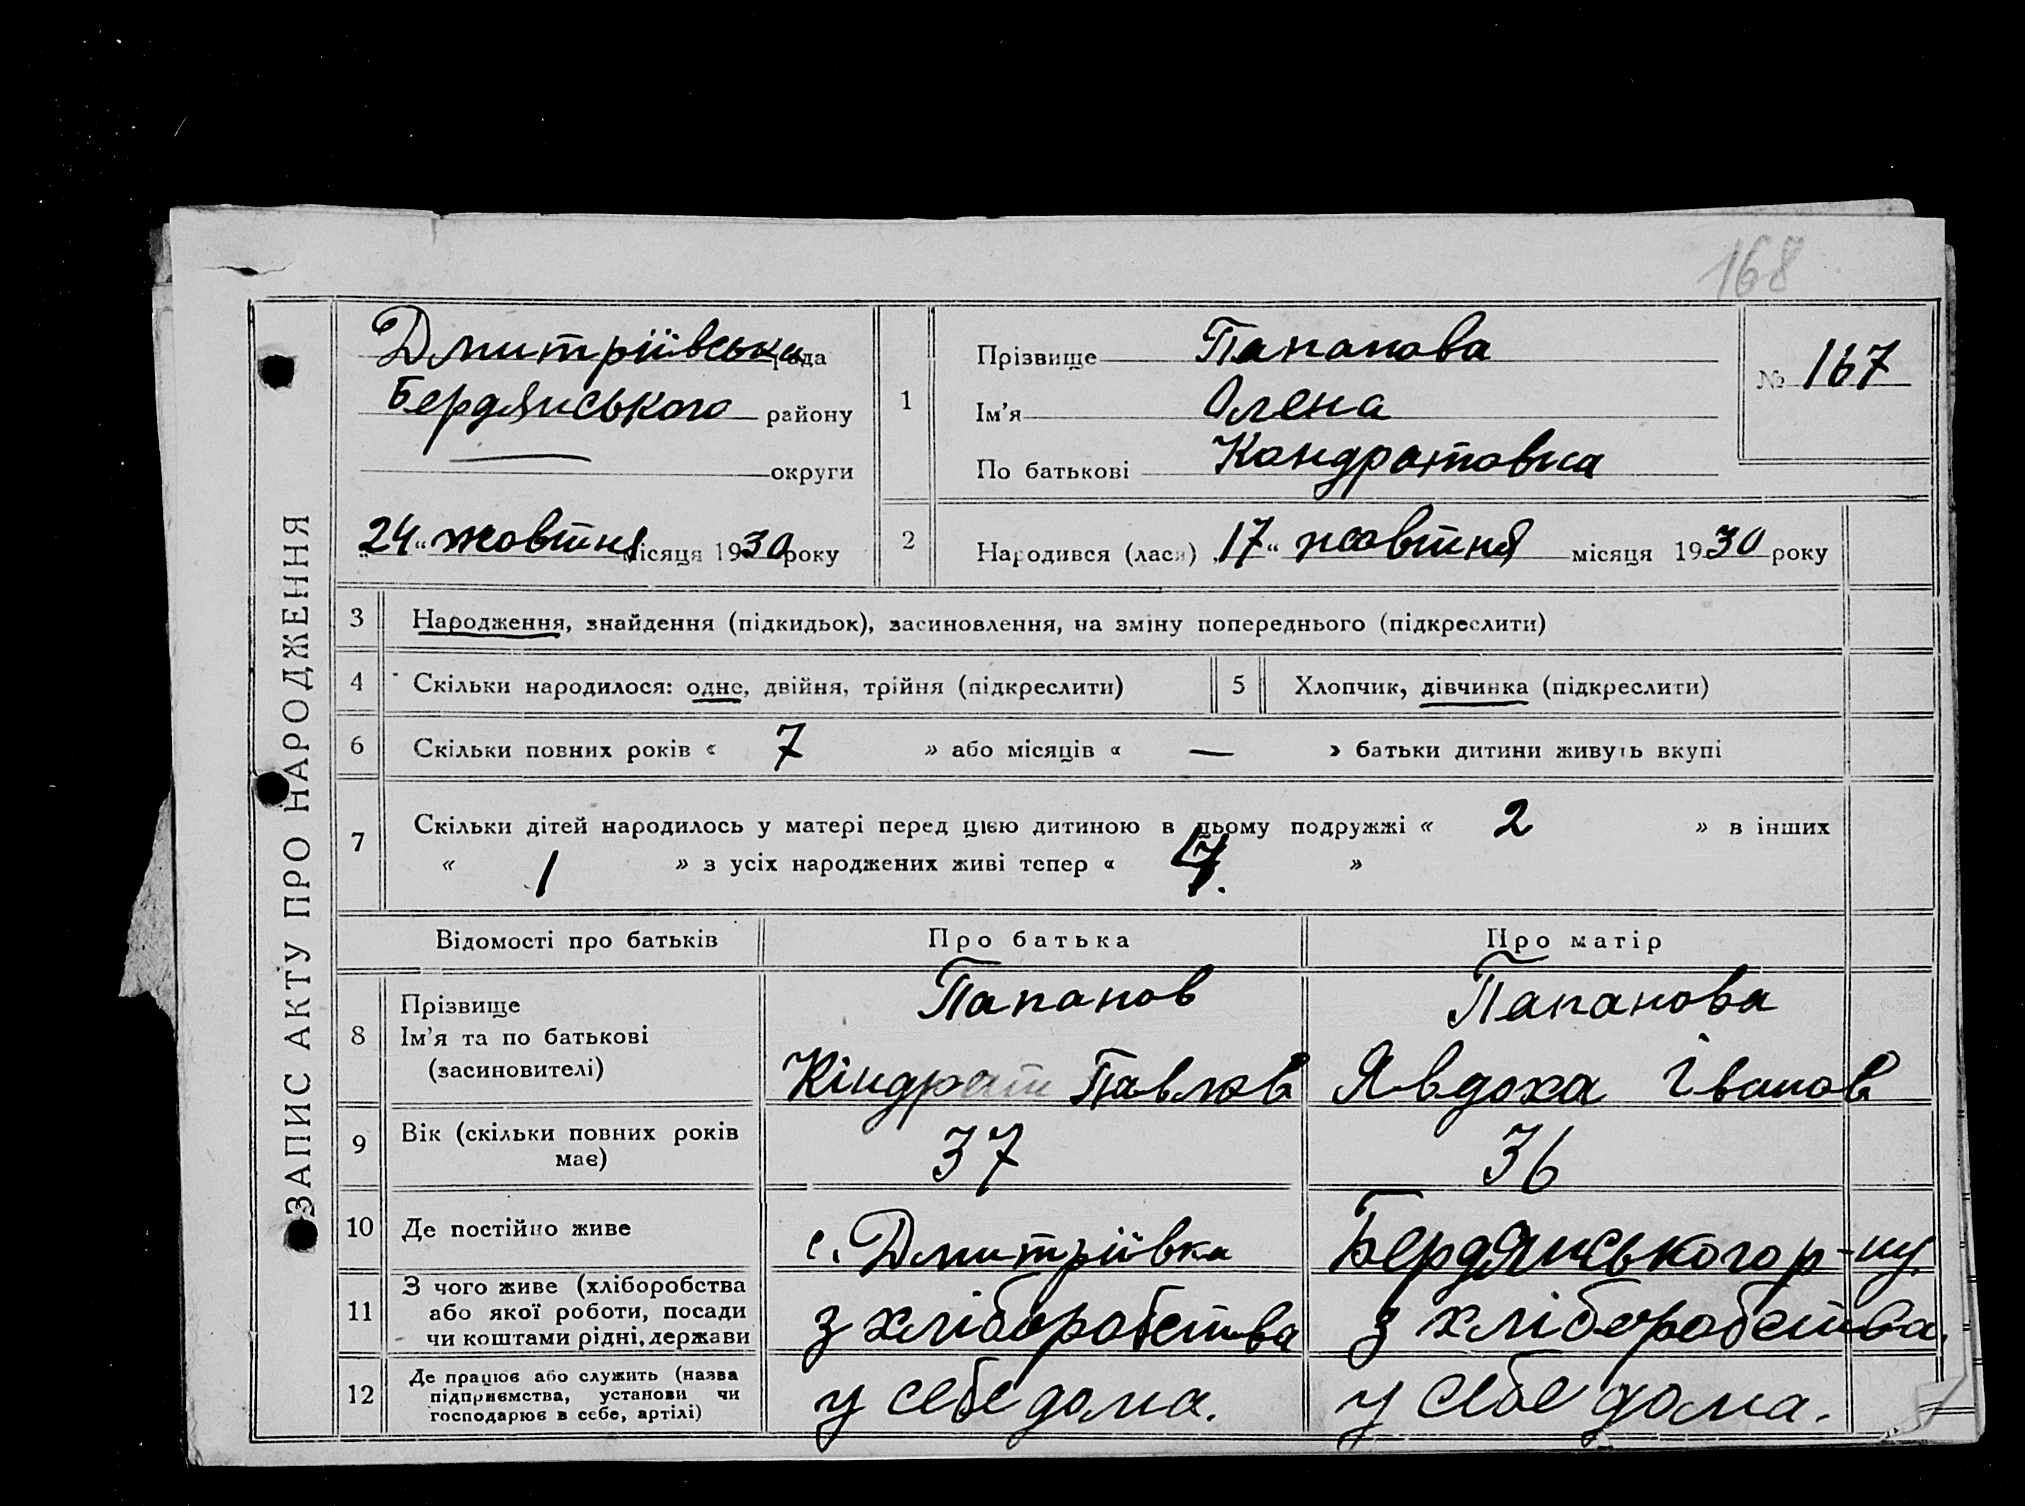 168
ЗАПИС АКТУ ПРО НАРОДЖЕННЯ
Дмитріївська рада
Бердянського району
округи
„24“ жовтня місяця 1930 року
1
Прізвище Папанова
Ім'я Олена
По батькові Кондратовна
№ 167
2
Народився (лася) „17“ жовтня місяця 1930 року
3 Народження, знайдення (підкидьок), засиновлення, на зміну попереднього (підкреслити)
4 Скільки народилося: одне, двійня, трійня (підкреслити) 5 Хлопчик, дівчинка (підкреслити)
6 Скільки повних років « 7 » або місяців « — » батьки дитини живуть вкупі
7 Скільки дітей народилось у матері перед цією дитиною в цьому подружжі « 2 » в інших
« 1 » з усіх народжених живі тепер « »
Відомості про батьків Про батька Про матір
8 Прізвище Папанов Папанова
Ім'я та по батькові
(засиновителі) Кіндрат Павлов Явдоха Іванов
9 Вік (скільки повних років має) 37 36
10 Де постійно живе с. Дмитріївка Бердянського р-ну.
11 З чого живе (хліборобства
або якої роботи, посади
чи коштами рідні, держави з хліборобства з хліборобства.
12 Де працює або служить (назва
підприємства, установи чи
господарює в себе, артілі) у себе дома. у себе дома.